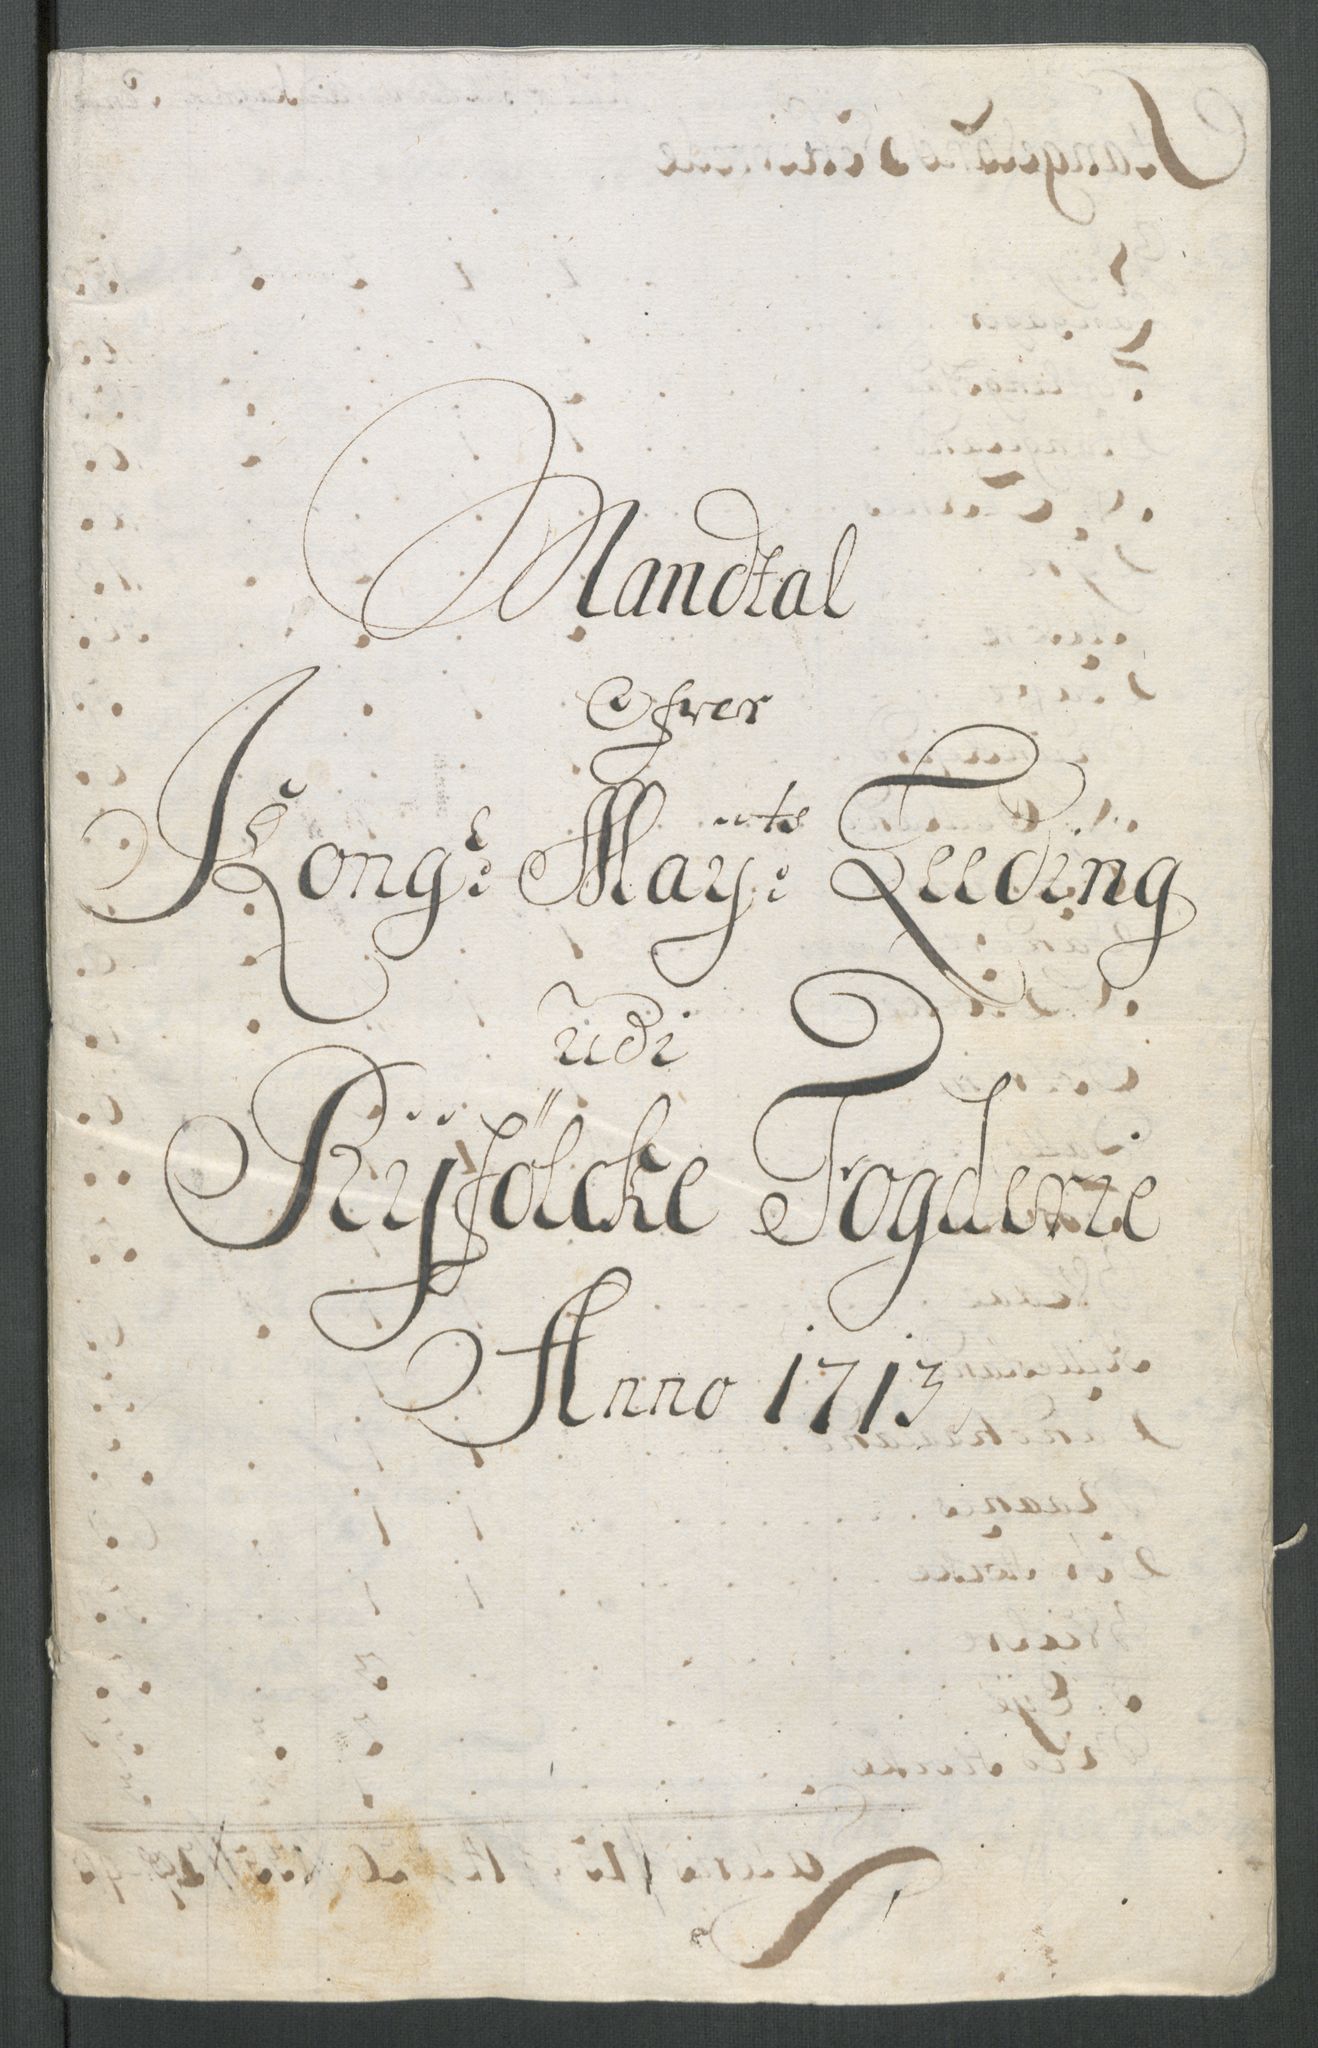 Mandtal
Ofver
Kongl: Mayts: Teeding
udi
Ryfölcke Fogderie
Anno 1713